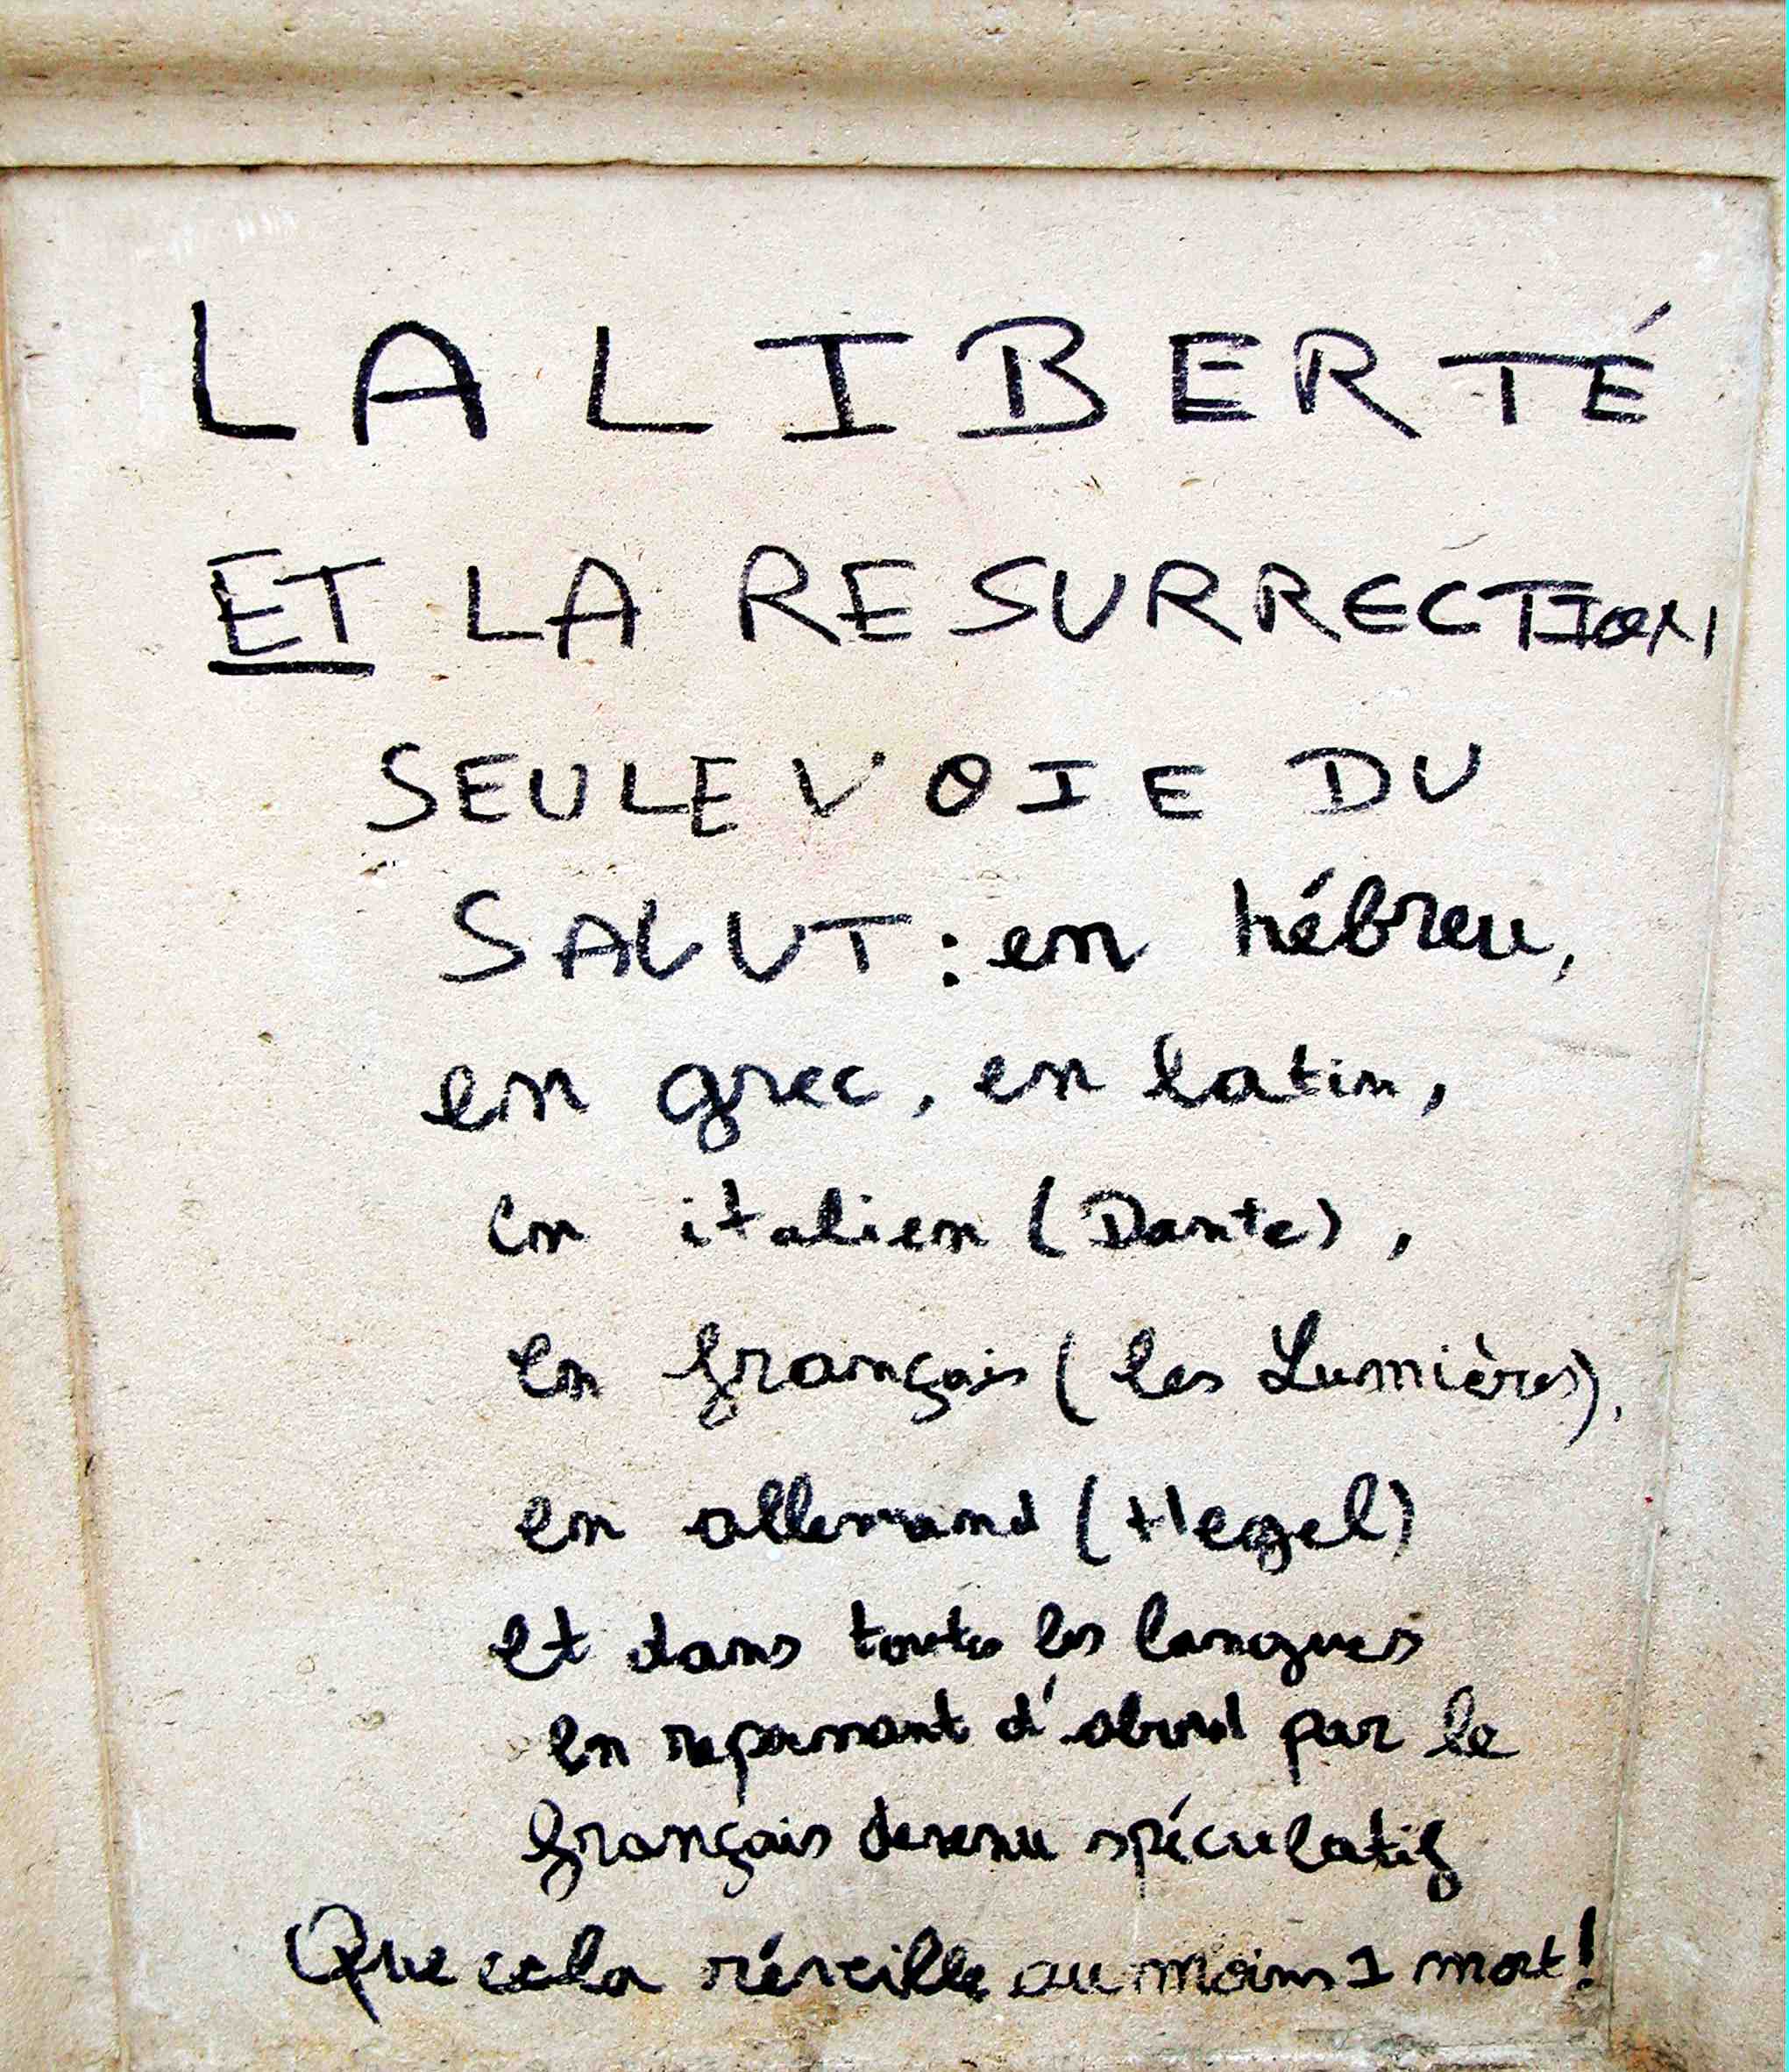 LA LIBERTÉ
ET LA RESURRECTION
SEULE VOIE DU
SALUT : en hébreu,
en grec, en latin,
en italien (Dante),
en français (les Lumières),
en allemand (Hegel)
et dans toutes les langues
en repassant d'abord par le
français devenu spéculatif
Que cela réveille au moins 1 mort !